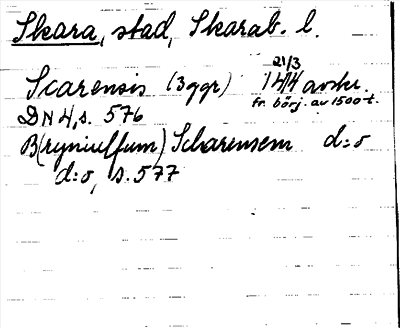 Skara, stad, Skarab. l.
21/3
Scarensis (3ggr) 1414 avskr.
fr. börj. av 1500-t.
DN 4, s. 576
B(ryniulfum) Scharensem d:o
d:o, s. 577